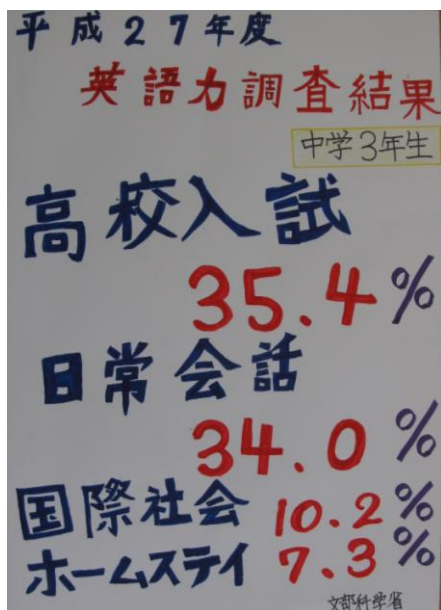 平成27年度
英語力調査結果
中学3年生
高校入試
35.4%
日常会話
34.0%
国際社会 10.2%
ホームステイ 7.3%
文部科学省